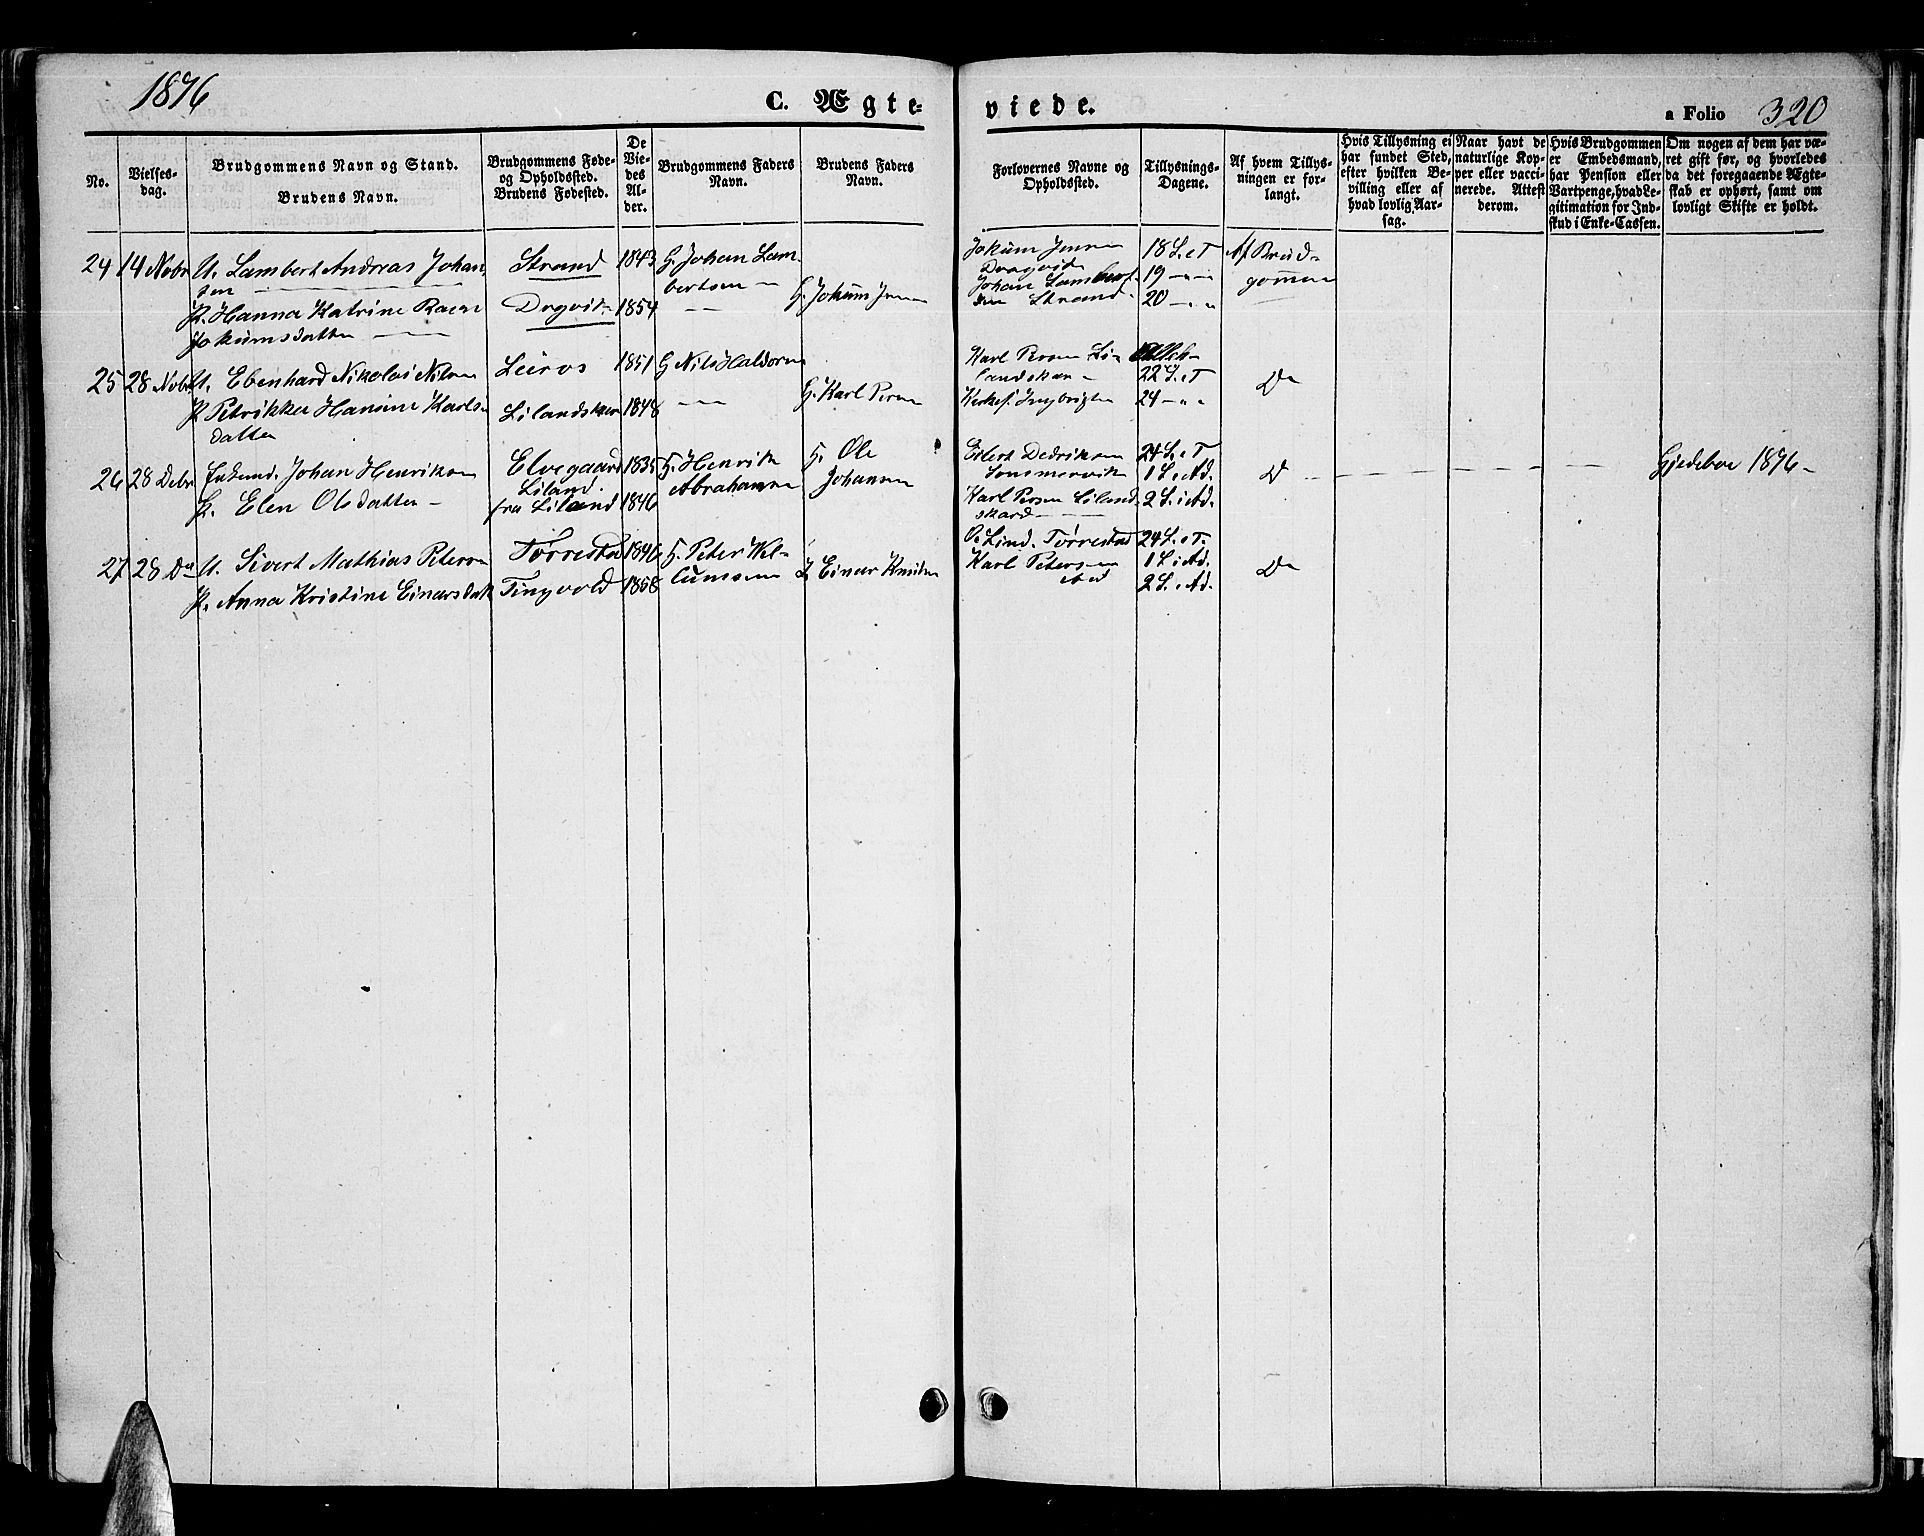 1876
C. Ægte-
viede.
a Folio 320
No.
Vielses-
dag.
Brudgommens Navn og Stand.
Brudens Navn.
Brudgommens Føde-
og Opholdssted.
Brudens Fødested.
De
Vie-
des
Al-
der.
Brudgommens Faders
Navn.
Brudens Faders
Navn.
Forlovernes Navne og
Opholdssted.
Tillysnings-
Dagene.
Af hvem Tillys-
ningen er for-
langt.
Hvis Tillysning ei
har fundet Sted,
efter hvilken Be-
villing eller af
hvad lovlig Aar-
sag.
Naar havt de
naturlige Kop-
per eller vacci-
nerede. Attest
derom.
Hvis Brudgommen
er Embedsmand,
har Pension eller
Vartpenge, hvad Le-
gitimation for Ind-
skud i Enke-Cassen.
Om nogen af dem har væ-
ret gift før, og hvorledes
da det foregaaende Ægte-
skab er ophørt, samt om
lovligt Skifte er holdt.
24 14 Nobr U. Lambert Andreas Johan
sen
P. Hanna Katrine
Jokumsdatter
Strand 1843
Dragvik 1854
G. Johan Lam-
bertsen
G. Jokum Jensen
Jokum Jensen
Dragvik
Johan Lambert-
sen Strand
18 S. e T
19 - " -
20 - " "
Af Brud-
gommen
25 28 Nobr U. Ebenhard Nikolai Nilsen
P. Petrikka Hansine Karls-
datter
Leiros 1851
Lilandskar 1848
G Nils Haldorsen
G. Karl Persen
Karl Persen Li-
landskar
22 S. e T
24 - " "
Do
26 28 Debr Enkemd. Johan Henriksen
P. Elen Olsdatter
Elvegaard 1835
Liland
fra Liland 1846
G. Henrik
Abrahamsen
G. Ole
Johansen
Eilert Dedriksen
Sommervik
Karl Persen Liland
skard
24 S. e T
1 S. i Ad.
2 S. i Ad.
Do
Gjedeboe 1876
27 28 Do U. Sivert Mathias Petersen
P. Anna Kristine Einarsdatt
Tørrestad 1846
Tingvold 1858
G. Peter Kl-
lumsen
G. Einar Knudsen
O. Lind. Tørrestad
Karl Petersen
ibid
24 S. e T.
1 S. i Ad.
2 S. i Ad.
Do